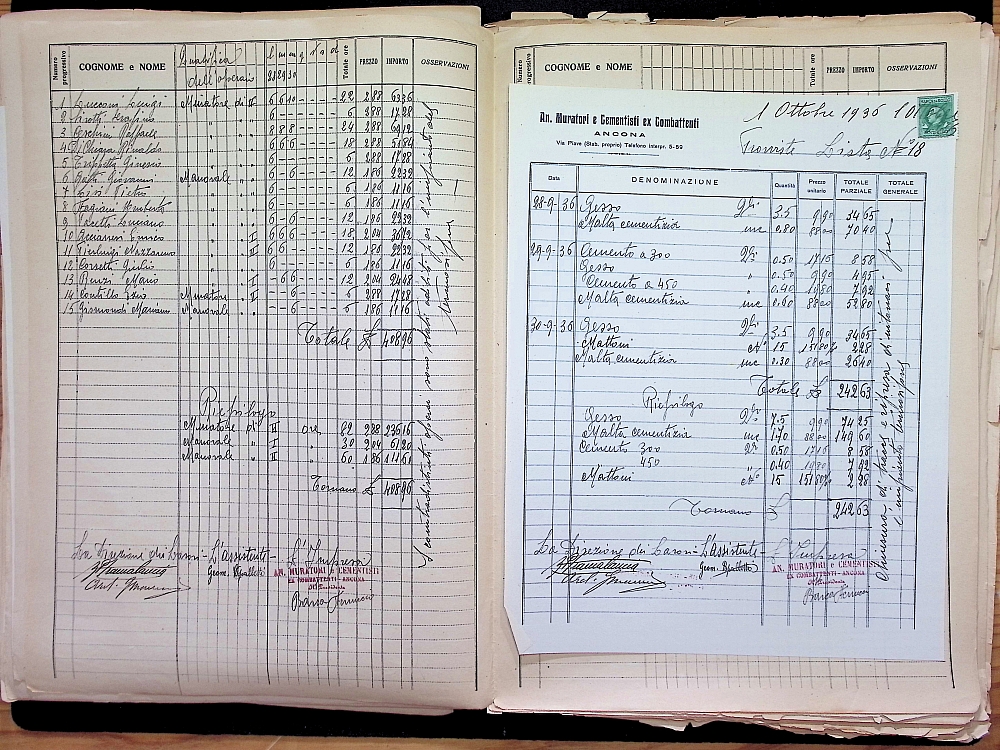 Numero progressivo
COGNOME e NOME
Qualifica dell'operaio
l m m g v s d
28 29 30
Totale ore
PREZZO
IMPORTO
OSSERVAZIONI
1 Luigi Muratore di II 6 6 10 - - - - 22 288 6336
2 Serafino " " 6 - - 6 288 1728
3 Raffaele " " 8 8 8 - - - - 24 288 6912
4 Di Chiara Rinaldo " " 6 6 6 - - - - 18 288 5184
5 Trippetta Ginesio " " 6 288 1728
6 Giovanni Manovale " " 6 - 6 - - - - 12 186 2232
7 Pietro " " 6 186 1116
8 Fagiani Umberto " " 6 186 1116
9 Luciano " " 6 - 6 - - - - 12 186 2232
10 Enrico " " I 6 6 6 - - - - 18 204 3672
11 Pierluigi Nazzareno " " II 6 6 - - - - 12 186 2232
12 Corsetti Giulio " " 6 186 1116
13 Renzi Mario " " I - 6 6 - - - - 12 204 2448
14 Contillo Ezio Muratore " II - - 6 - - - - 6 288 1728
15 Gismondi Mariano Manovale " " 6 186 1116
Totale £ 40896
Riepilogo
Muratore di II ore 82 288 23616
Manovale " I " 30 204 6120
Manovale " II " 60 186 11160
Tornano £ 40896
I contradistinti operai sono stati adibiti per
La Direzione dei Lavori - L'Assistente - L'Impresa
Geom.
AN. MURATORI e CEMENTISTI
EX COMBATTENTI - ANCONA
Numero progressivo
COGNOME e NOME
Totale ore
PREZZO
IMPORTO
OSSERVAZIONI
An. Muratori e Cementisti ex Combattenti
ANCONA
Via Piave (Stab. proprio) Telefono interpr. 5-59
1 Ottobre 1936
Provviste Lista N° 18
Data
DENOMINAZIONE
Quantità
Prezzo unitario
TOTALE PARZIALE
TOTALE GENERALE
28-9-36 Gesso Qli 3.5 9,90 34 65
Malta cementizia mc 0.80 88 00 70 40
29-9-36 Cemento a 300 Qli 0.50 17 15 8 58
Gesso " 0.50 9 90 4 95
Cemento a 450 " 0.40 19 80 7 92
Malta cementizia mc 0.60 88 00 52 80
30-9-36 Gesso Qli 3.5 9 90 34 65
Mattoni N° 15 151 80% 2 28
Malta cementizia mc 0.30 88 00 26 40
Totale £ 242 63
Riepilogo
Gesso Qli 7.5 9,90 74 25
Malta cementizia mc 1.70 88 00 149 60
Cemento 300 Qli 0.50 17 15 8 58
450 " 0.40 19 80 7 92
Mattoni N° 15 151 80% 2 28
Tornano £ 242 63
Chiusura di tracce e ripresa di intonaci per
La Direzione dei Lavori - L'Assistente - L'Impresa
Geom.
AN. MURATORI e CEMENTISTI
EX COMBATTENTI - ANCONA